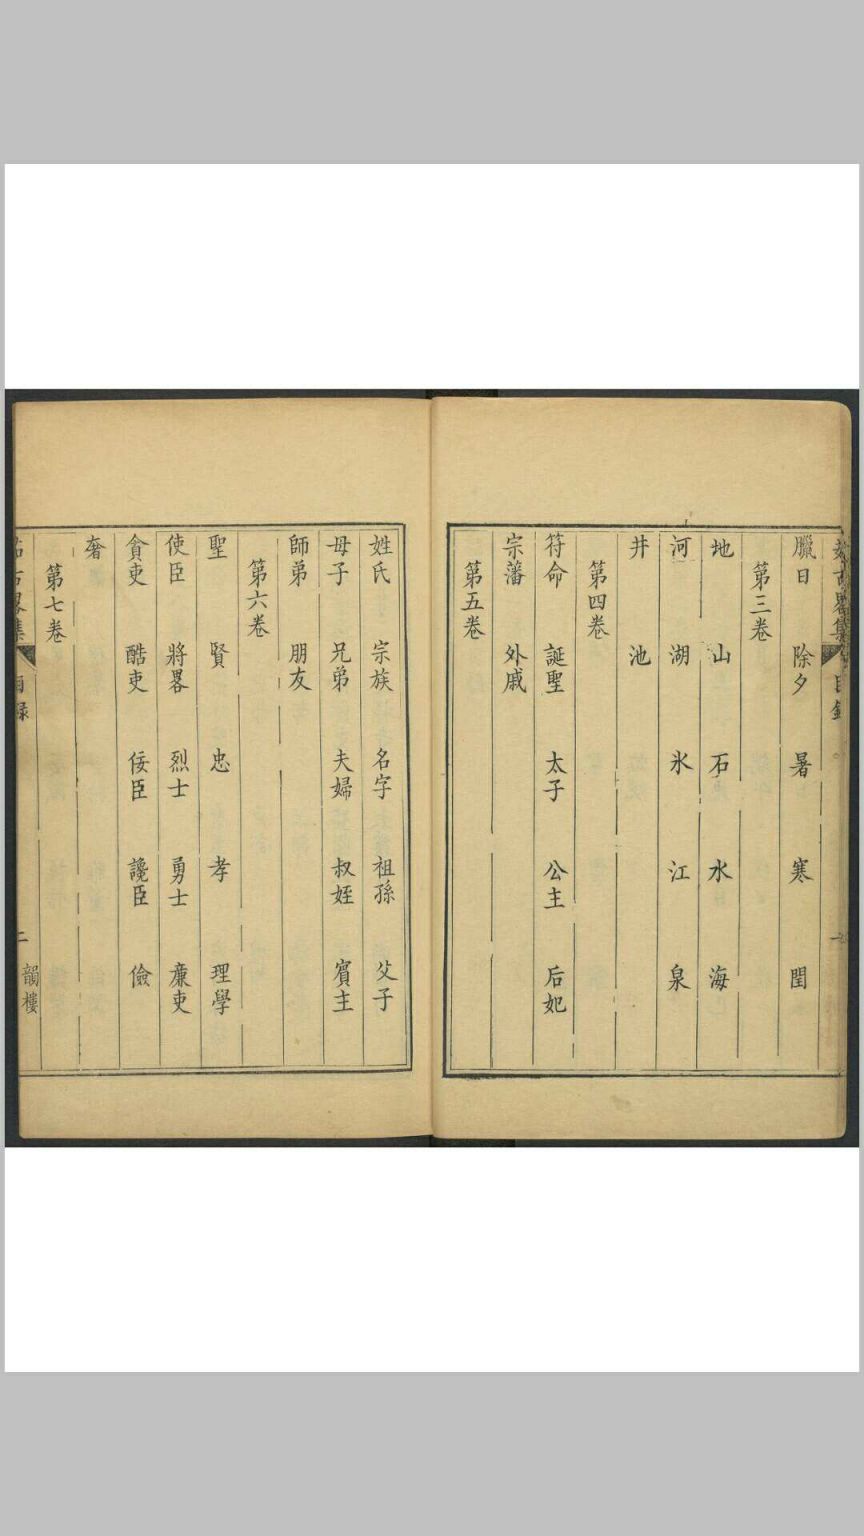 臘日 除夕 暑 寒 閏
第三卷
地 山 石 水 海
河 湖 氷 江 泉
井 池
第四卷
符命 誕聖 太子 公主 后妃
宗藩 外戚
第五卷
姓氏 宗族 名字 祖孫 父子
母子 兄弟 夫婦 叔姪 賓主
師弟 朋友
第六卷
聖 賢 忠 孝 理學
使臣 將畧 烈士 勇士 廉吏
貪吏 酷吏 佞臣 讒臣 儉
奢
第七卷
古畧集 目錄 二 韻樓